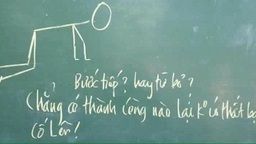 Bước tiếp? hay từ bỏ?
Chẳng có thành công nào lại k° có thất bại
Cố Lên!